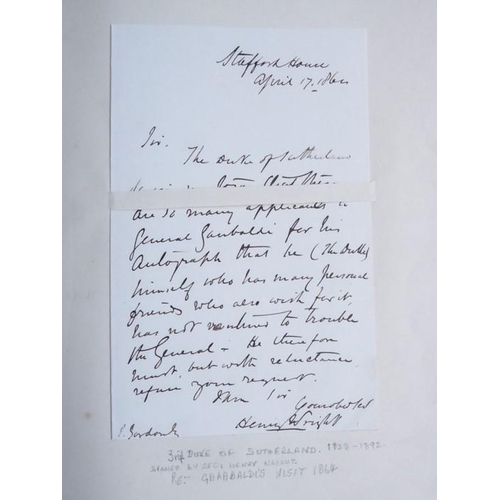 Stafford House
April 17. 1864
Sir.
The Duke of Sutherland
are so many applicants to
General Garibaldi for his
Autograph that he (The Duke)
himself who has many personal
friends who also wish for it
has not ventured to trouble
the General - He therefore
must, but with reluctance
refuse your request.
I am Sir
Yours obedtly
Henry Wright
3rd DUKE OF SUTHERLAND. 1828-1892
SIGNED BY SEC. HENRY WRIGHT
RE:- GHARBALDI'S VISIT 1864